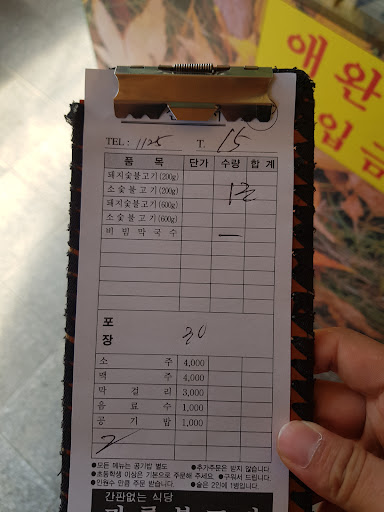 애완
입금
TEL: 1125 T. 15
품 목 단가 수량 합 계
돼지숯불고기(200g)
소숯불고기(200g) 1
돼지숯불고기(600g)
소숯불고기(600g)
비빔막국수 ㅡ
포장
소 주 4,000
맥 주 4,000
막 걸 리 3,000
음 료 수 1,000
공 기 밥 1,000
2
●모든 메뉴는 공기밥 별도 ●추가주문은 받지 않습니다.
●초등학생 이상은 기본으로 주문해 주세요. ●구워서 드립니다.
●인원수 만큼 주문 받습니다. ●술은 2인에 1병입니다.
간판없는 식당